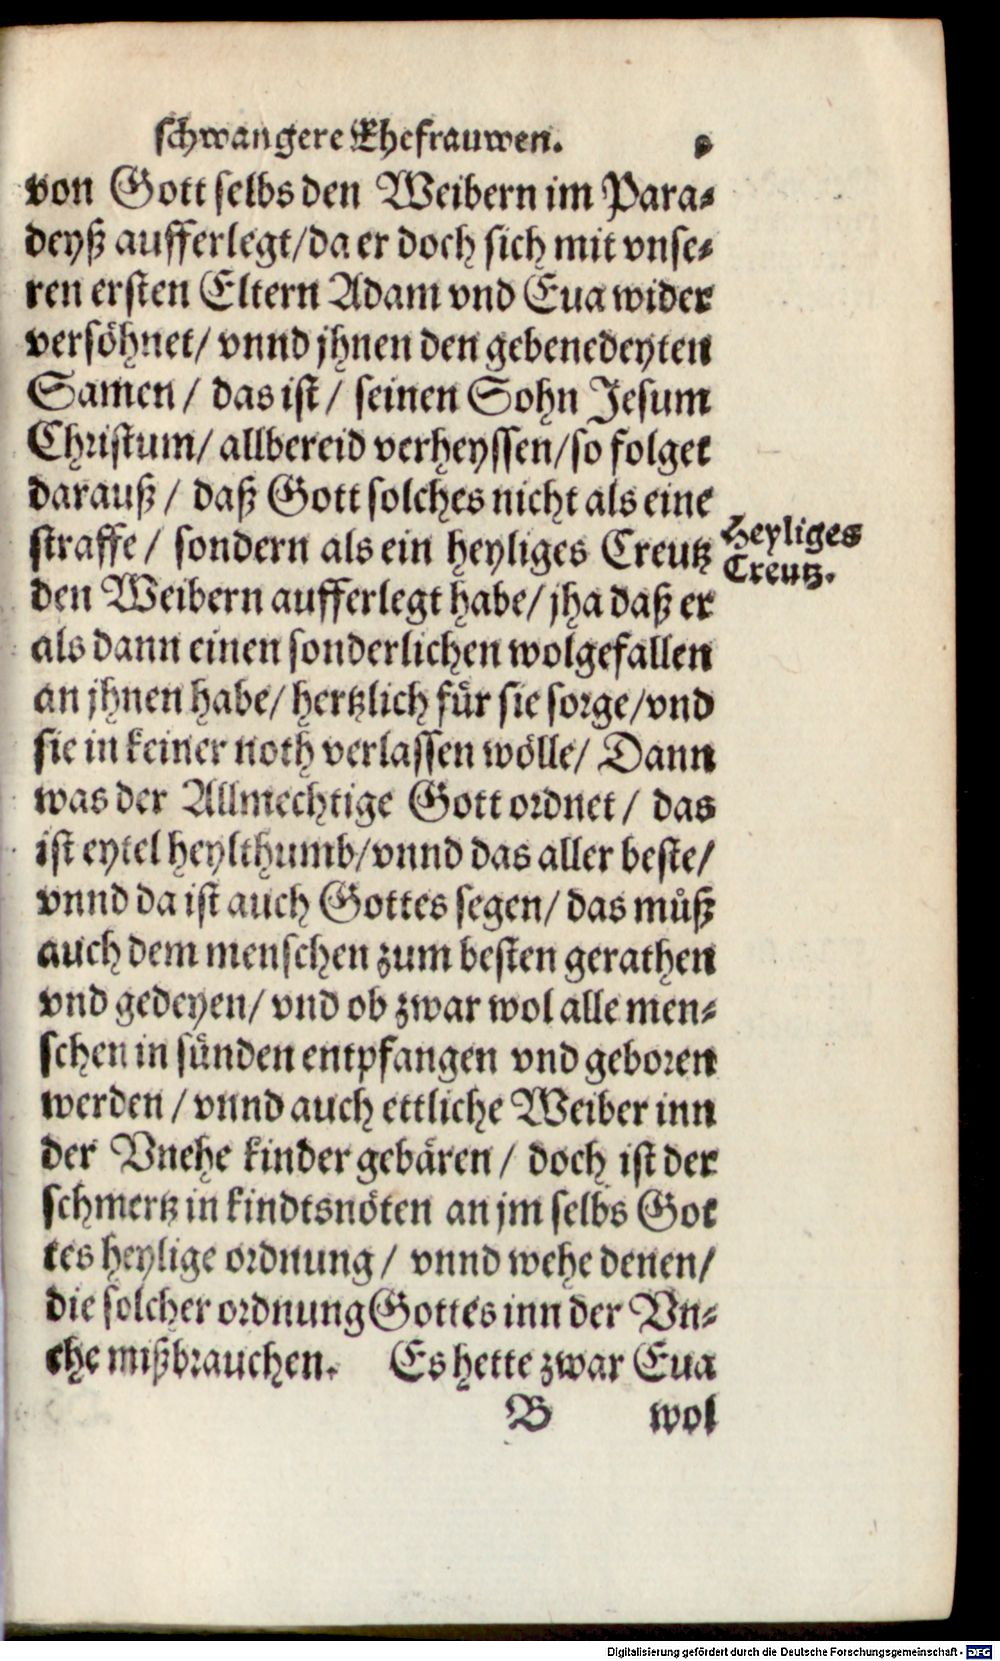 schwangere Ehefrauwen.
von Gott selbs den Weibern im Para-
deyß aufferlegt/da er doch sich mit vnse-
ren ersten Eltern Adam vnd Eua wider
versöhnet/ vnnd jhnen den gebenedeyten
Samen/ das ist/ seinen Sohn Jesum
Christum/ allbereid verheyssen/so folget
darauß/ daß Gott solches nicht als eine
straffe/ sondern als ein heyliges Creutz
Heyliges
Creutz.
den Weibern aufferlegt habe/ jha daß er
als dann einen sonderlichen wolgefallen
an jhnen habe/ hertzlich für sie sorge/vnd
sie in keiner noth verlassen wölle/ Dann
was der Allmechtige Gott ordnet/ das
ist eytel heylthumb/vnnd das aller beste/
vnnd da ist auch Gottes segen/ das můß
auch dem menschen zum besten gerathen
vnd gedeyen/ vnd ob zwar wol alle men-
schen in sünden entpfangen vnd geboren
werden/ vnnd auch ettliche Weiber inn
der Vnehe kinder gebären/ doch ist der
schmertz in kindtsnöten an jm selbs Got
tes heylige ordnung/ vnnd wehe denen/
die solcher ordnung Gottes inn der Vn-
ehe mißbrauchen. Es hette zwar Eua
B wol